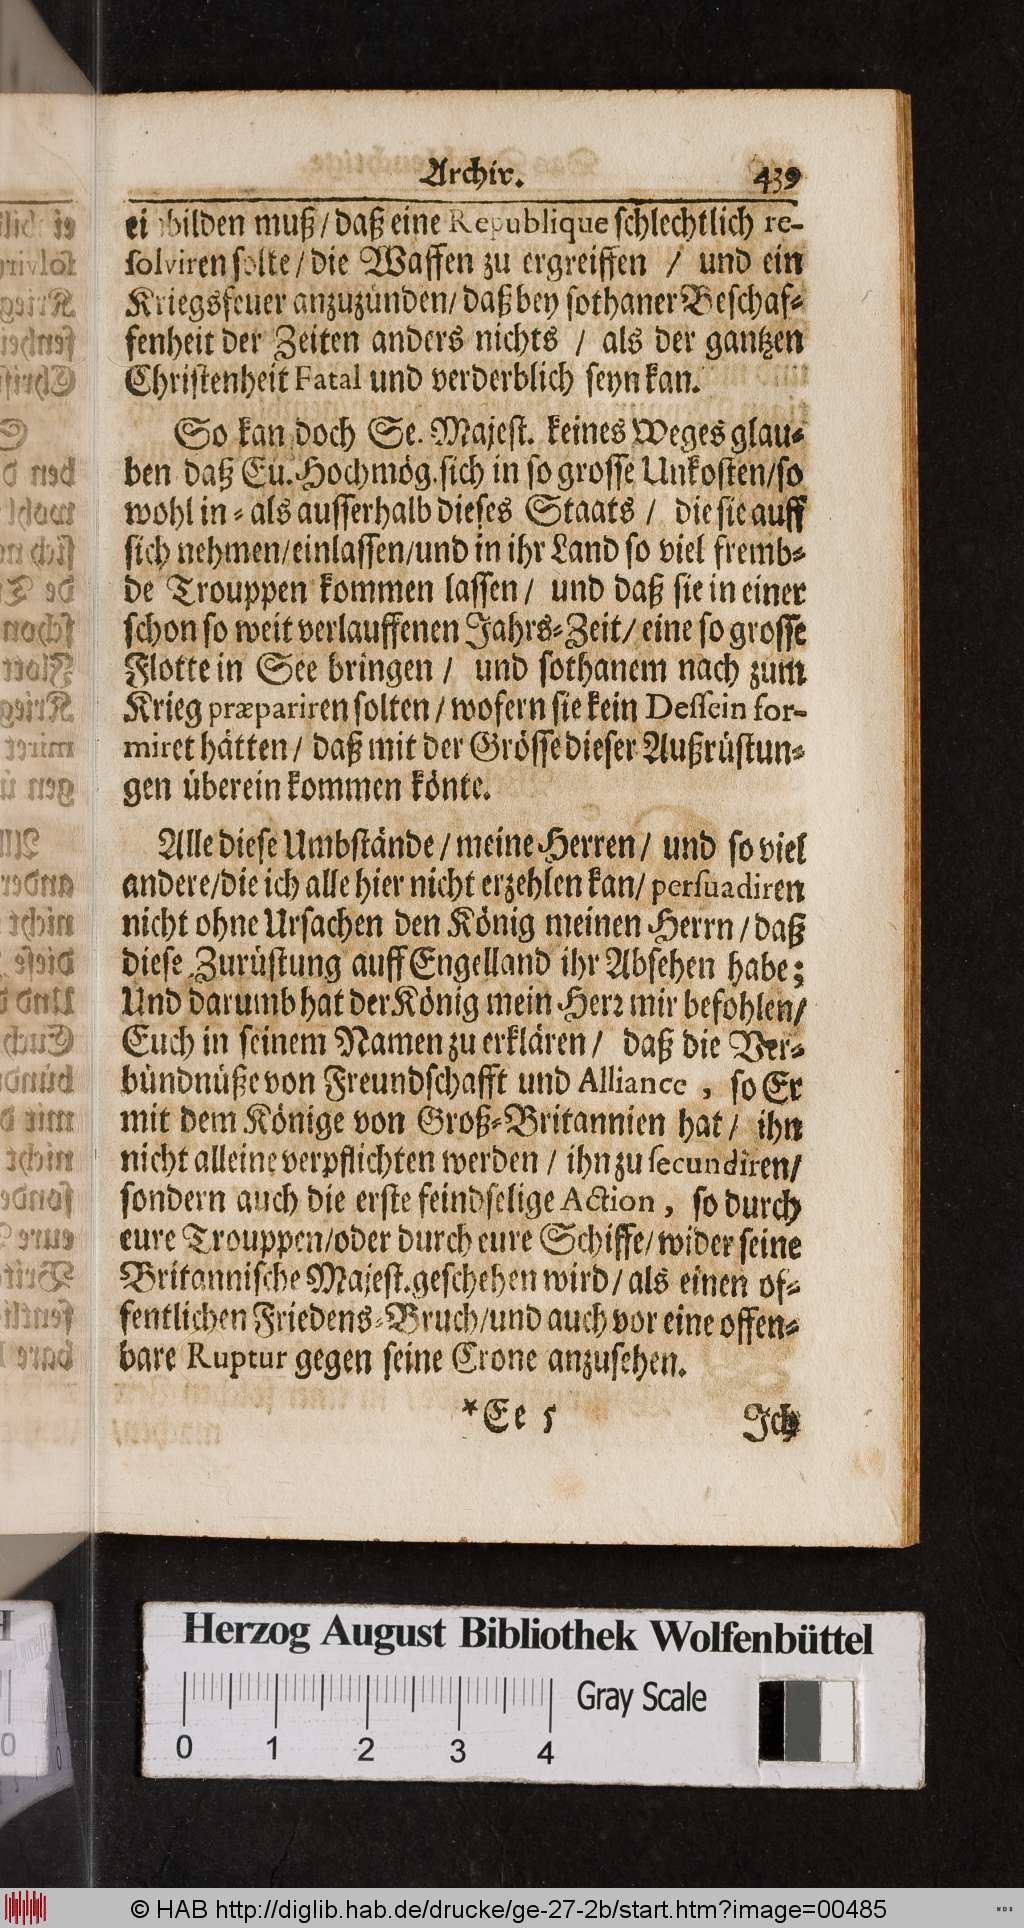 Archiv. 439
einbilden muß / daß eine Republique schlechtlich re-
solviren solte / die Waffen zu ergreiffen / und ein
Kriegsfeuer anzuzünden / daß bey sothaner Beschaf-
fenheit der Zeiten anders nichts / als der gantzen
Christenheit Fatal und verderblich seyn kan.
So kan doch Se. Majest. keines Weges glau-
ben daß Eu. Hochmög. sich in so grosse Unkosten / so
wohl in- als ausserhalb dieses Staats / die sie auff
sich nehmen / einlassen / und in ihr Land so viel fremb-
de Trouppen kommen lassen / und daß sie in einer
schon so weit verlauffenen Jahrs-Zeit / eine so grosse
Flotte in See bringen / und sothanem nach zum
Krieg præpariren solten / wofern sie kein Dessein for-
miret hätten / daß mit der Grösse dieser Außrüstun-
gen überein kommen könte.
Alle diese Umbstände / meine Herren / und so viel
andere / die ich alle hier nicht erzehlen kan / persuadiren
nicht ohne Ursachen den König meinen Herrn / daß
diese Zurüstung auff Engelland ihr Absehen habe;
Und darumb hat der König mein Herr mir befohlen /
Euch in seinem Namen zu erklären / daß die Ver-
bündnüße von Freundschafft und Alliance, so Er
mit dem Könige von Groß-Britannien hat / ihn
nicht alleine verpflichten werden / ihn zu secundiren /
sondern auch die erste feindselige Action, so durch
eure Trouppen / oder durch eure Schiffe / wider seine
Britannische Majest. geschehen wird / als einen of-
fentlichen Friedens-Bruch / und auch vor eine offen-
bare Ruptur gegen seine Crone anzusehen.
*Ee 5 Ich
Herzog August Bibliothek Wolfenbüttel
Gray Scale
0 1 2 3 4
© HAB http://diglib.hab.de/drucke/ge-27-2b/start.htm?image=00485